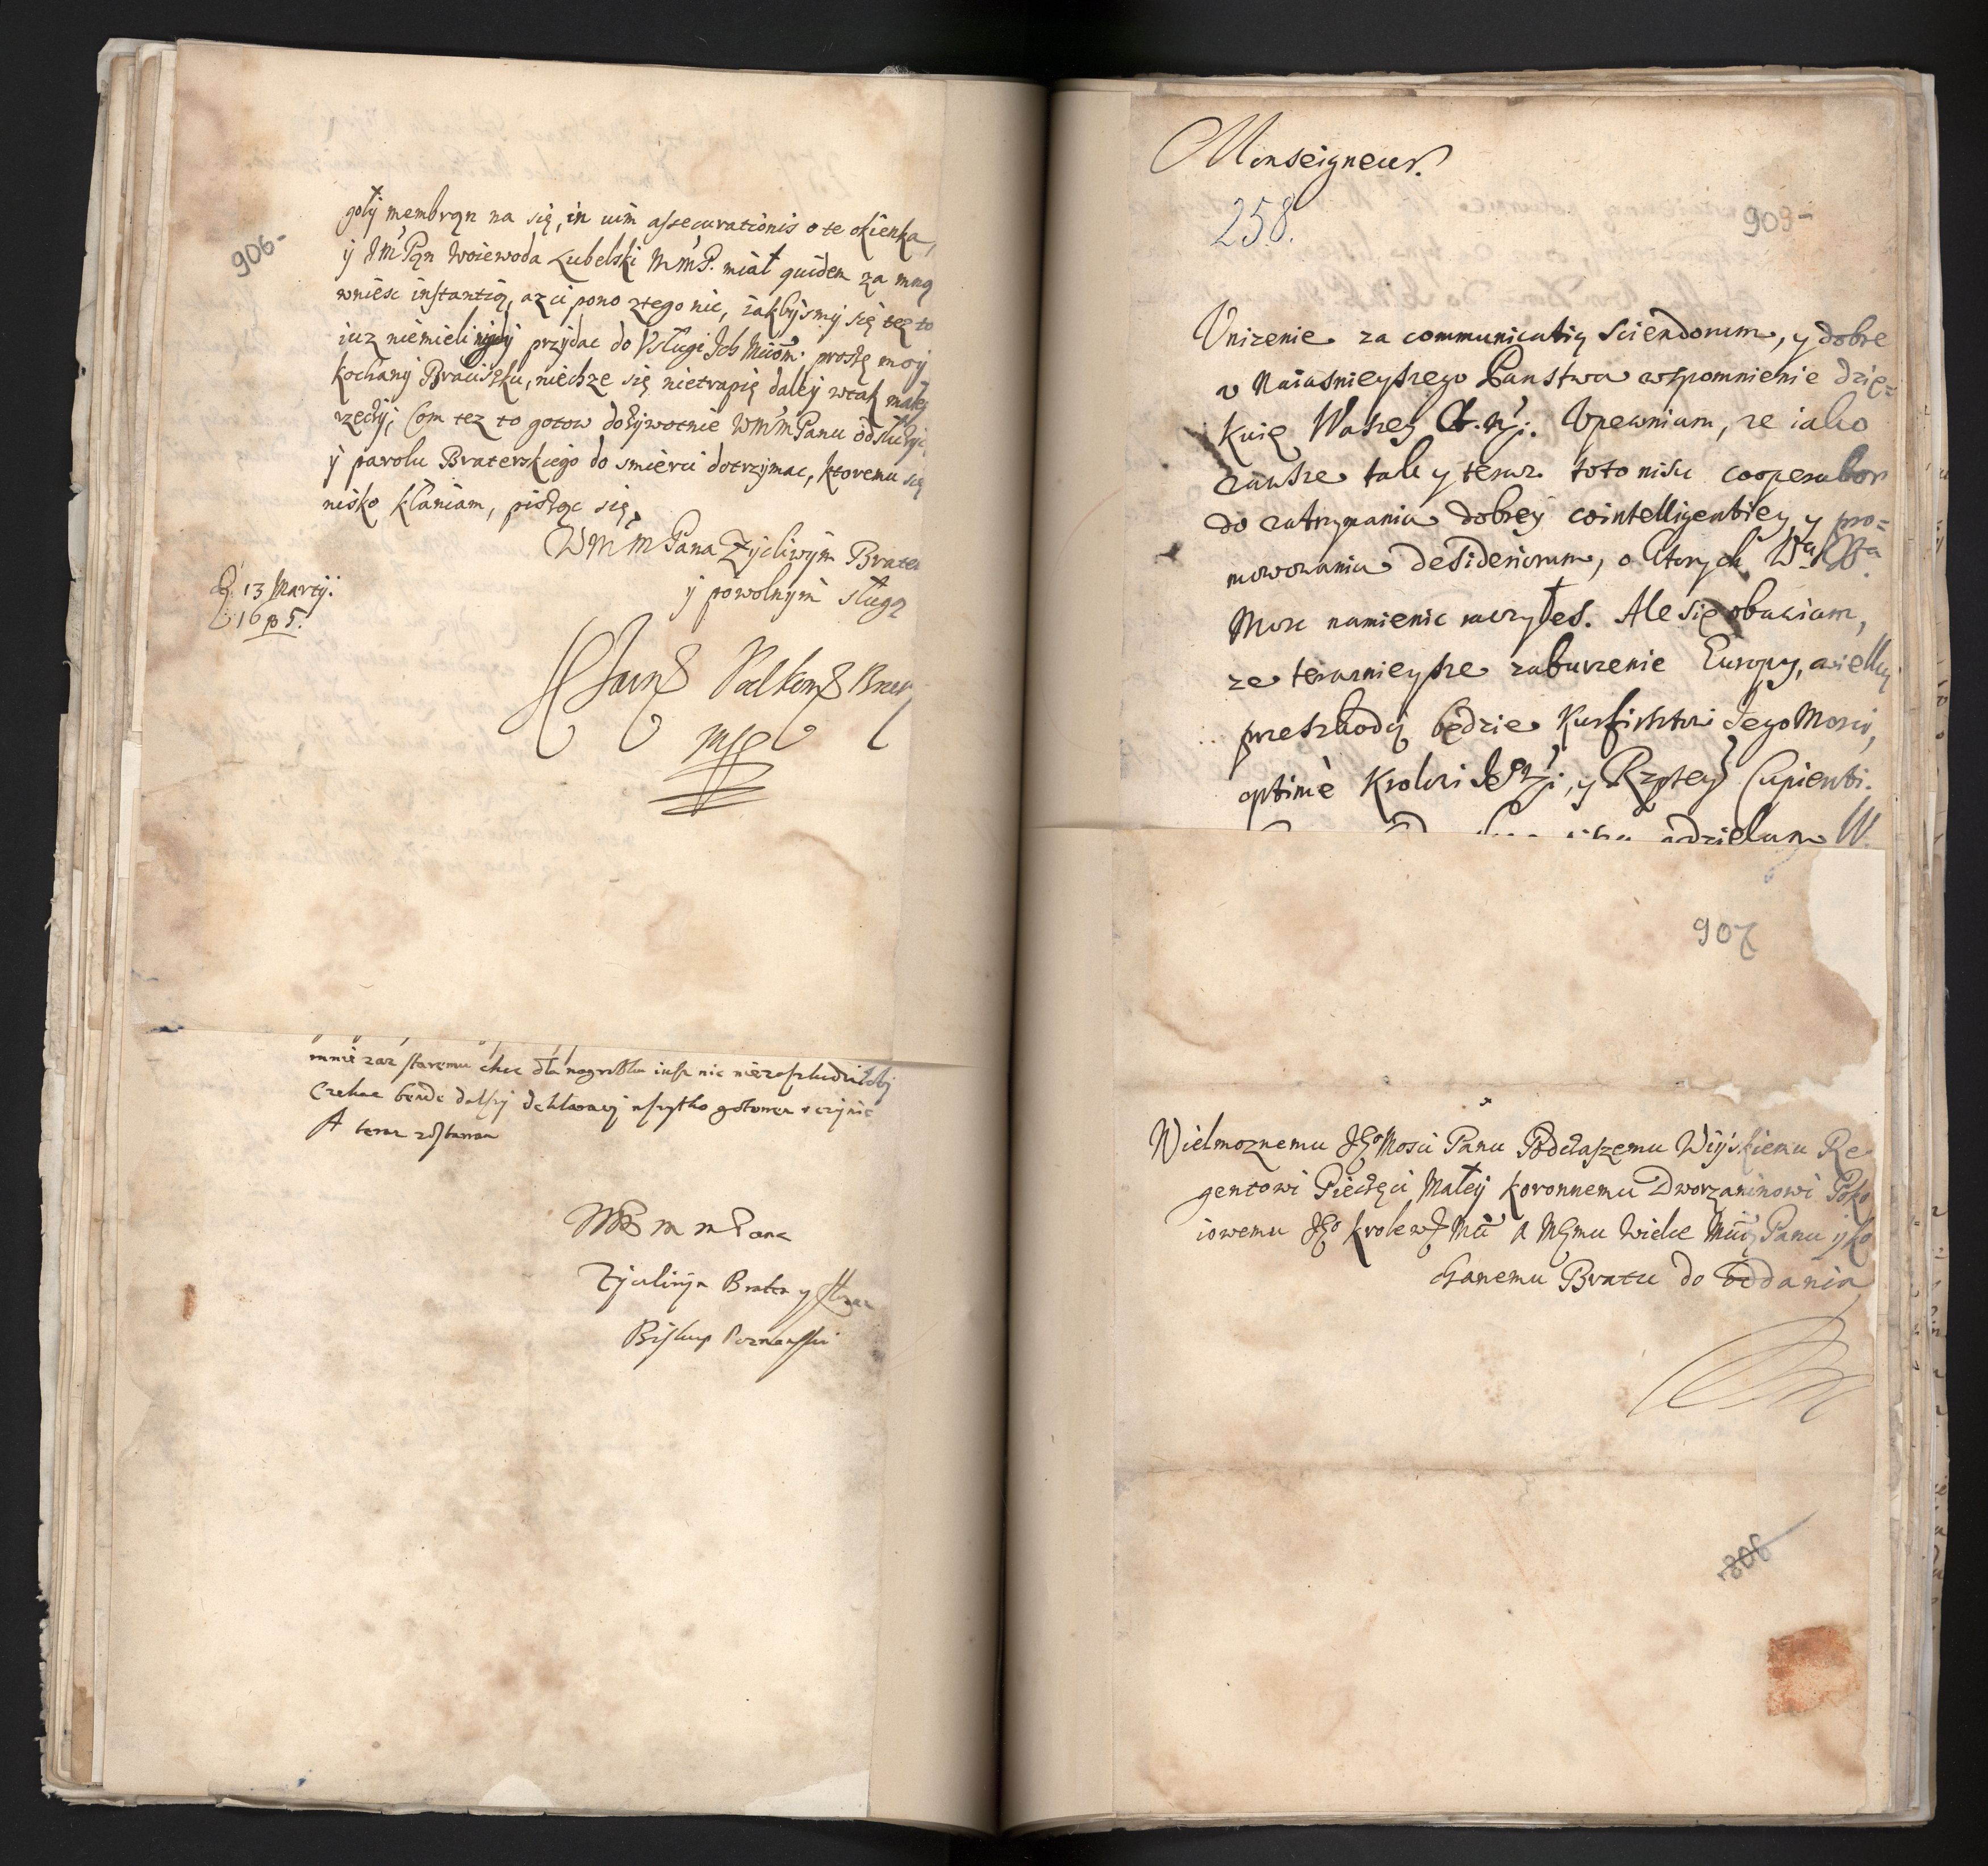 906-
goły membrąn na się, in uim assecurationis o te okienka,
ÿ JmPąn Woiewoda Lubelski MmP. miał quidem za mną
wniesc instantią, az ci pono ztego nic, iakbÿsmÿ się też to
iuz niemieli przÿdac do Vsługi Ich Mciom. proszę moÿ
kochanÿ Braciszku, niechze się nietrapię daleÿ wtak małeÿ
rzeczÿ, Com tez to gotow dożÿwotnie WMmPanu odsłużÿc
ÿ parolu Braterskiego do smierci dotrzÿmac, ktoremu się
nisko kłaniam, pisząc się,
WMmPana Zÿcliwÿm Bratem
ÿ powolnÿm sługą
13 Martÿ.
1685.
mnie zas staremu chec dla nagrobku insz nic
Czekac bende dalszÿ deklaracÿ wszytko gotowem uczÿnic
A teraz zostawam
WM m mPana
Zÿczliwÿm Bratem y sługą
Biskup Poznanski
Monseigneur.
258.
909-
Vnizenie za communicatią Sciendorum, y dobre
v Naiasnieyszego Panstwa wspomnienie dzię=
kuię Waszey Vpewniam, ze iako
zawsze tak y teraz toto nisu cooperabor
do zatrzymania dobrey cointelligentiey y pro=
mowowania desideriorum, o ktorych
Mosc namienic raczyłes. Ale się obawiam,
ze teraznieysze zaburzenie Europy, wielką
przeszkodą będzie Kurfirsztowi Jego Mosci,
optimè Krolowi y Rzptey Cupienti.
odzielam W.
907
Wielmoznemu JEo Mosci Panu Podczaszemu Wÿskiemu Re
gentowi Pieczęci Małeÿ Koronnemu Dworzaninowi Poko
iowemu JEo Krolew Mci A Memu Wielce Mci Panu ÿ ko
chanemu Bratu do Oddania
806